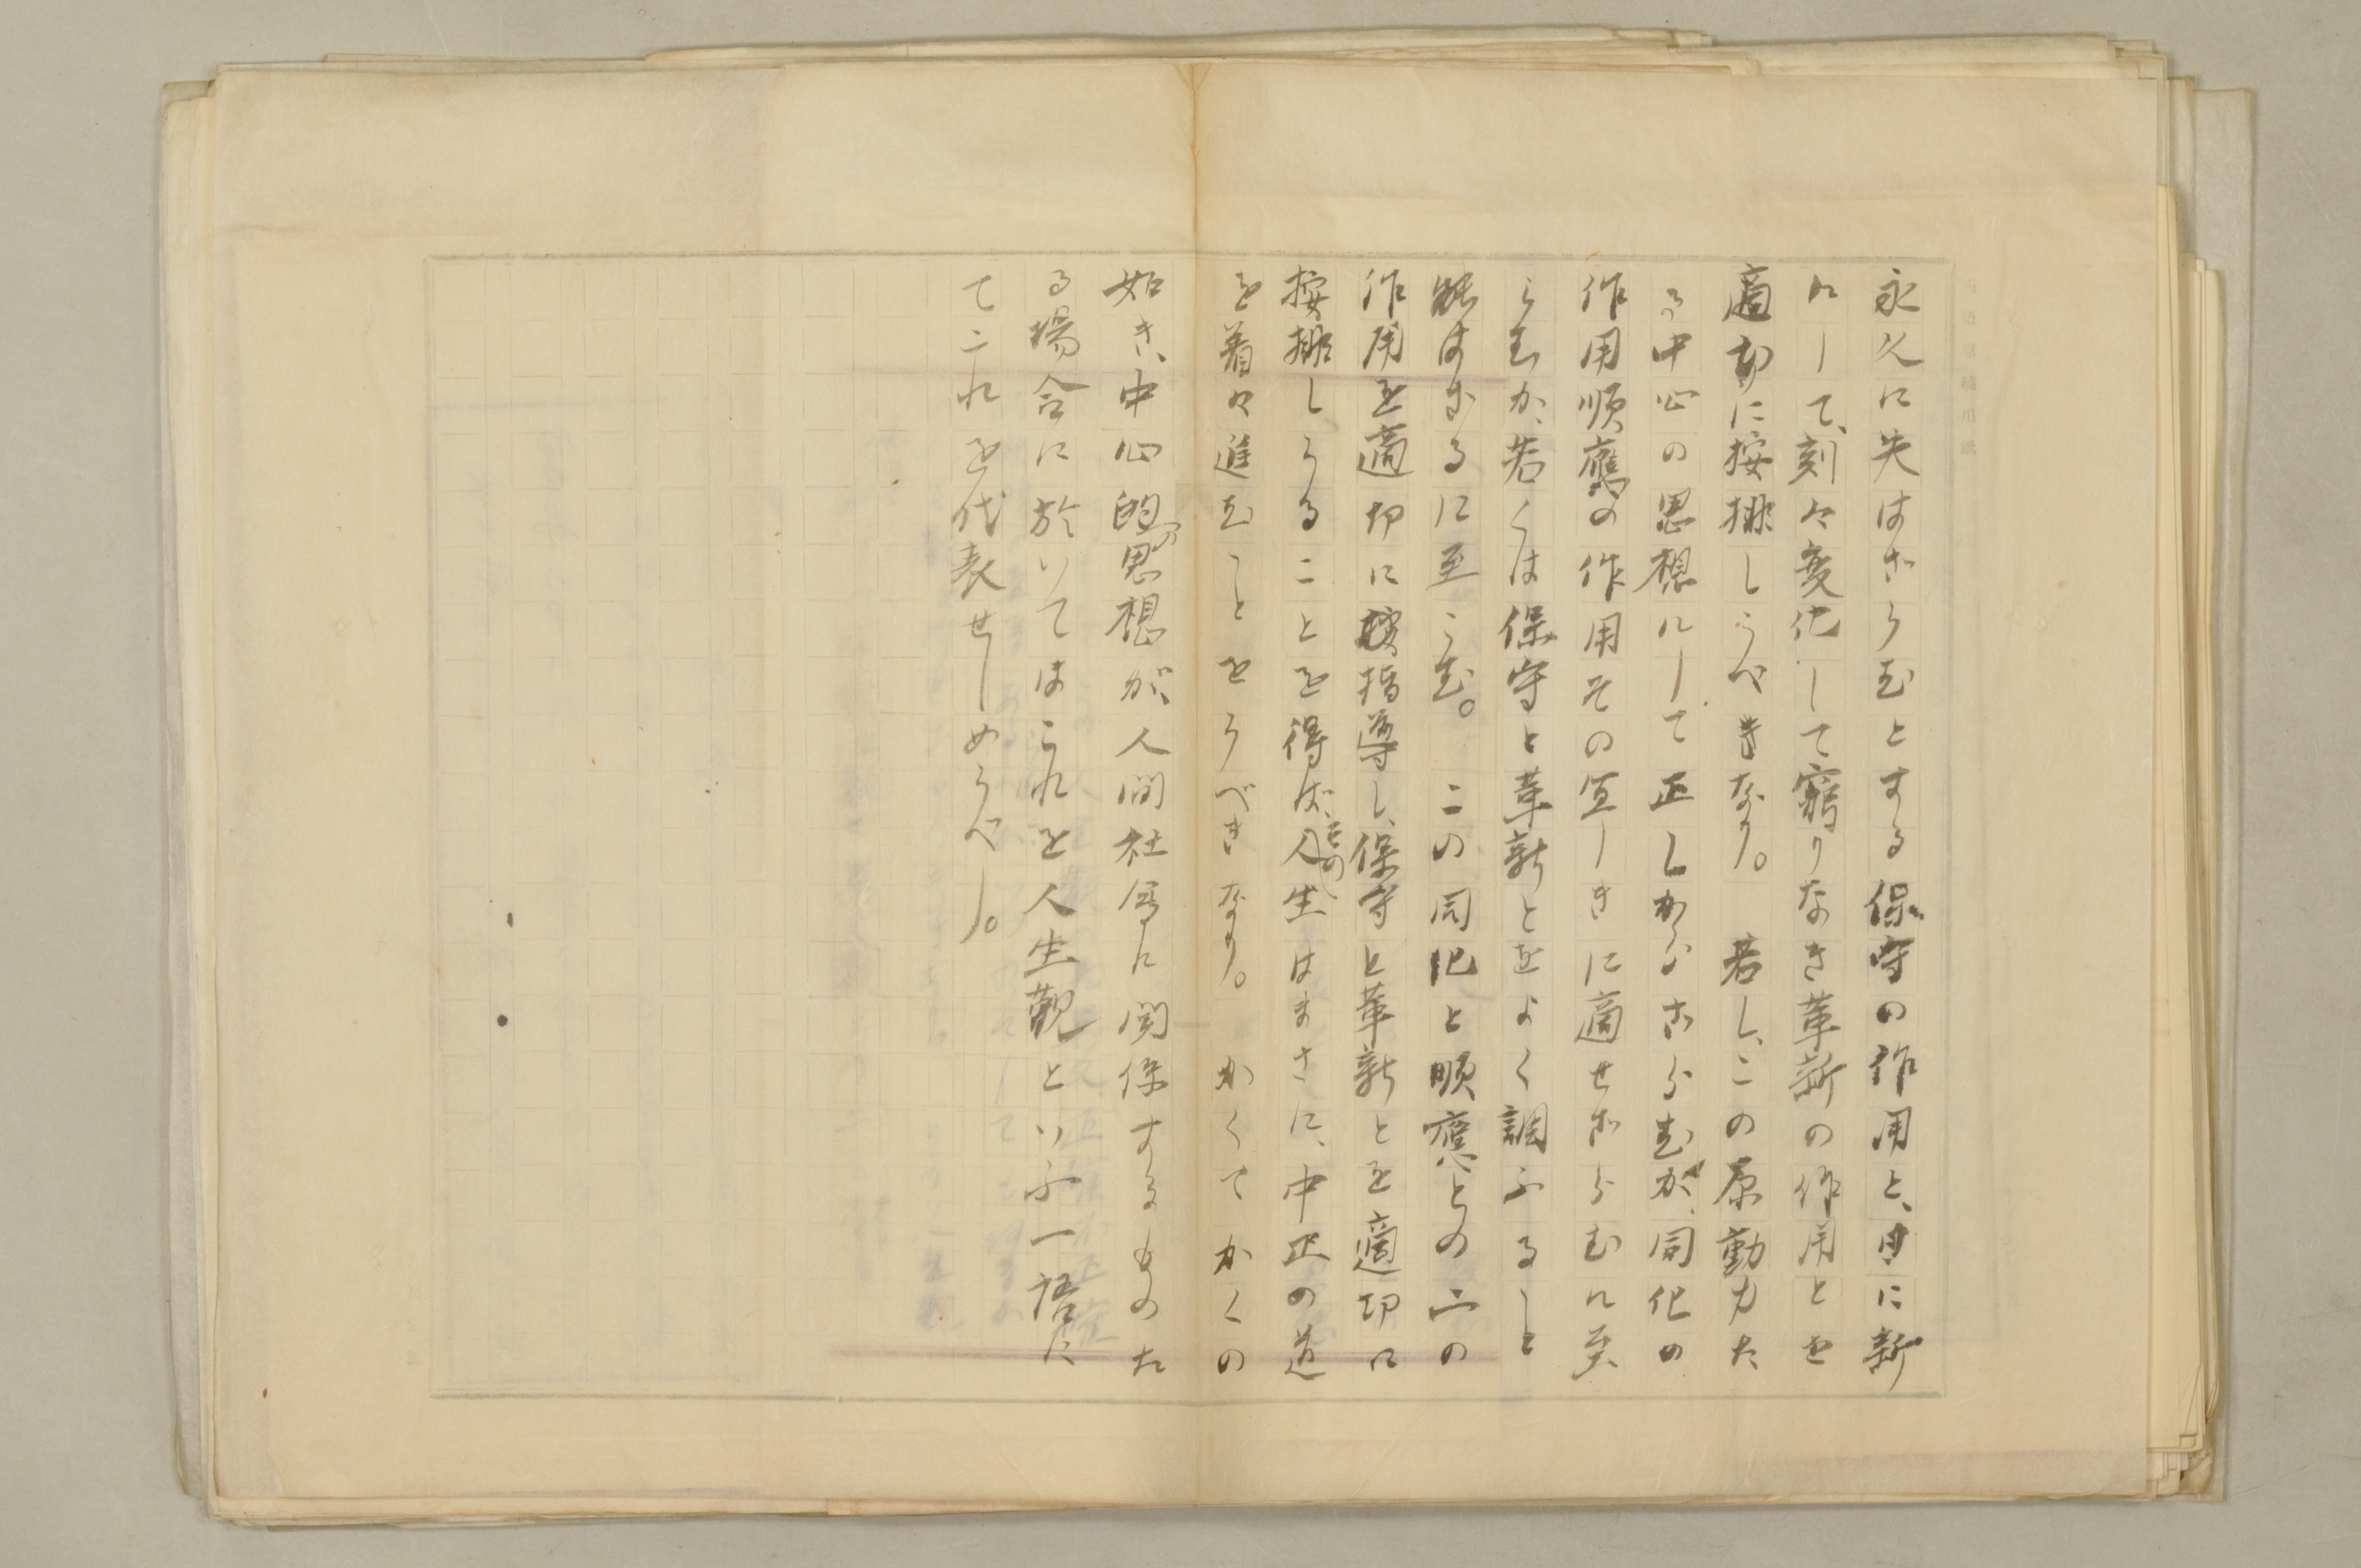 永久に失はざらむとする保守の作用と、日に新
にして、刻々変化して窮りなき革新の作用とを
適切に按排しうべきなり。 若し、この原動力た
る中心の思想にして正しからざらむか、同化の
作用順應の作用その宜しきに適せざらむに至
らむか、若くは保守と革新とをよく調ふること
能はざるに至らむ。 この同化と順應との二の
作用を適切に指導し、保守と革新とを適切に
按排しうることを得ば、その人生はまさに、中正の道
を着々進むことをうべきなり。 かくてかくの
如き、中心的の思想が、人間社会に関係するものた
る場合に於いてはこれを人生観といふ一語に
てこれを代表せしめうべし。